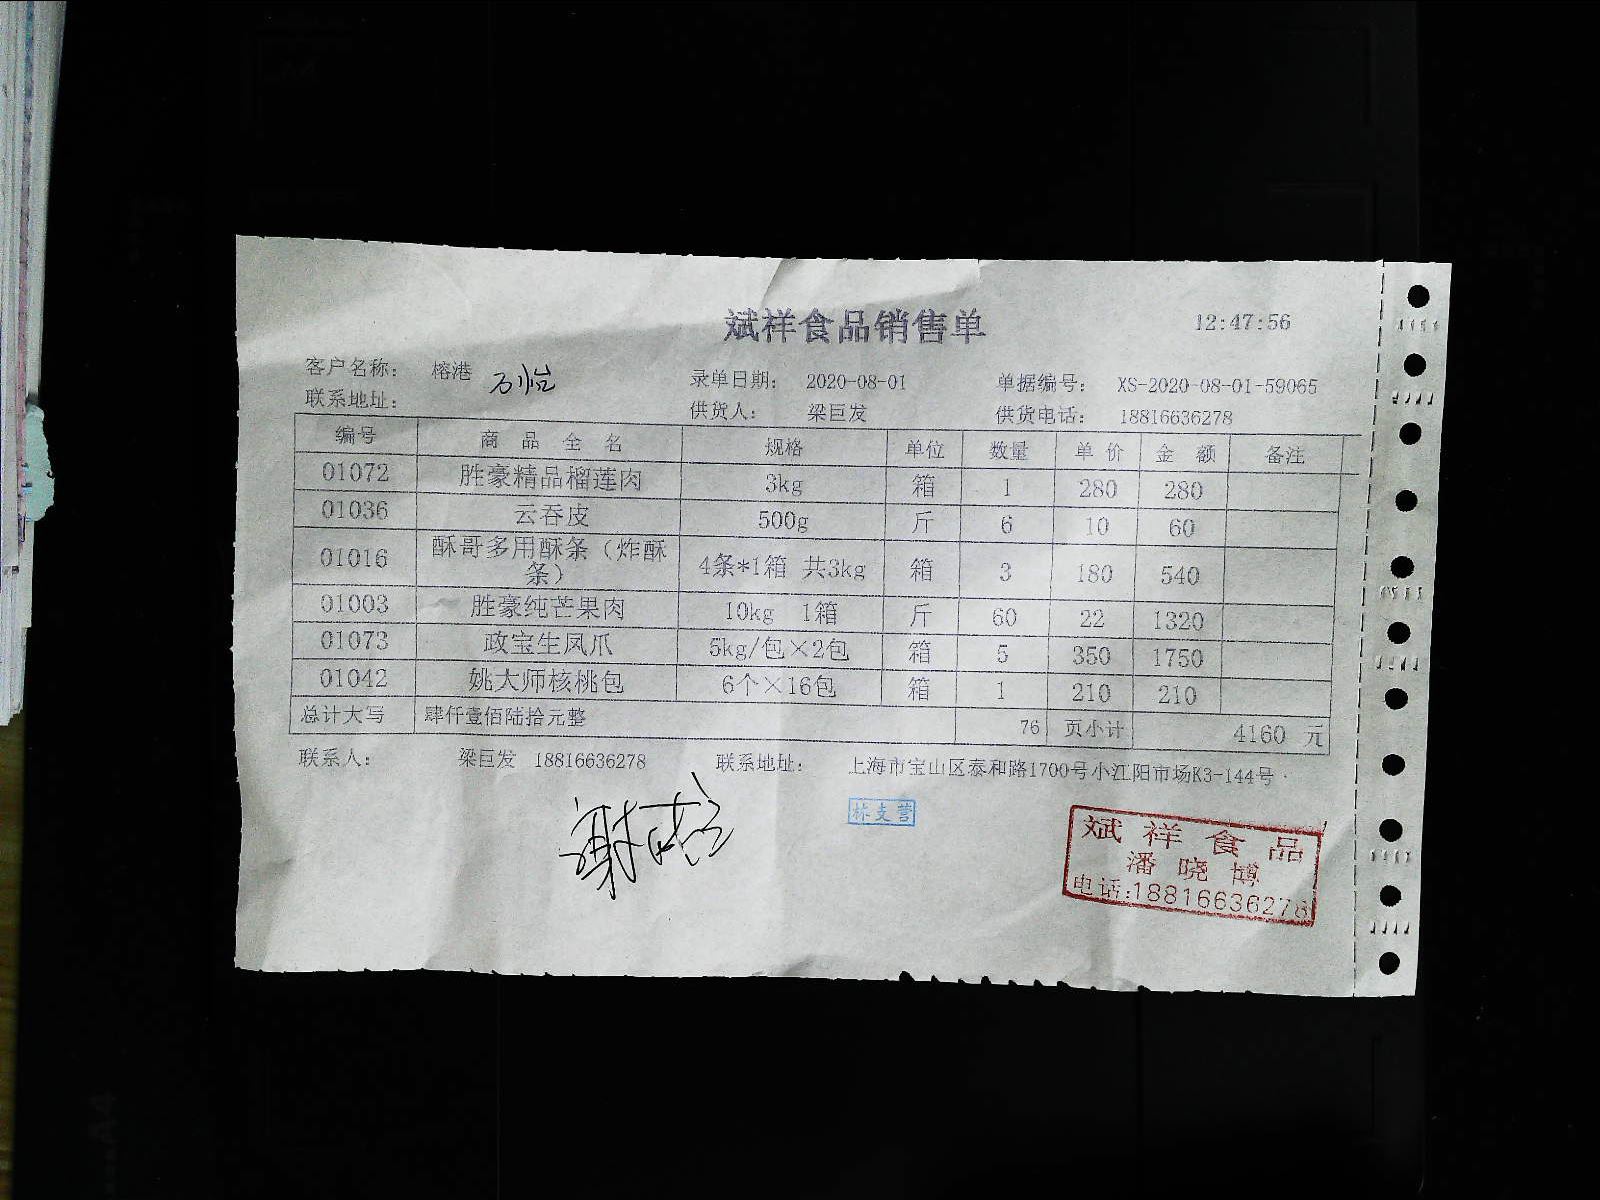 斌祥食品销售单 12:47:56
客户名称： 榕港 万怡 录单日期： 2020-08-01 单据编号： XS-2020-08-01-59065
联系地址： 供货人： 梁巨发 供货电话： 18816636278
编号 商品全名 规格 单位 数量 单价 金额 备注
01072 胜豪精品榴莲肉 3kg 箱 1 280 280
01036 云吞皮 500g 斤 6 10 60
01016 酥哥多用酥条（炸酥条） 4条*1箱 共3kg 箱 3 180 540
01003 胜豪纯芒果肉 10kg 1箱 斤 60 22 1320
01073 政宝生凤爪 5kg/包×2包 箱 5 350 1750
01042 姚大师核桃包 6个×16包 箱 1 210 210
总计大写 肆仟壹佰陆拾元整 76 页小计 4160 元
联系人： 梁巨发 18816636278 联系地址： 上海市宝山区泰和路1700号小江阳市场K3-144号
林支营
斌祥食品
潘晓博
电话:18816636278